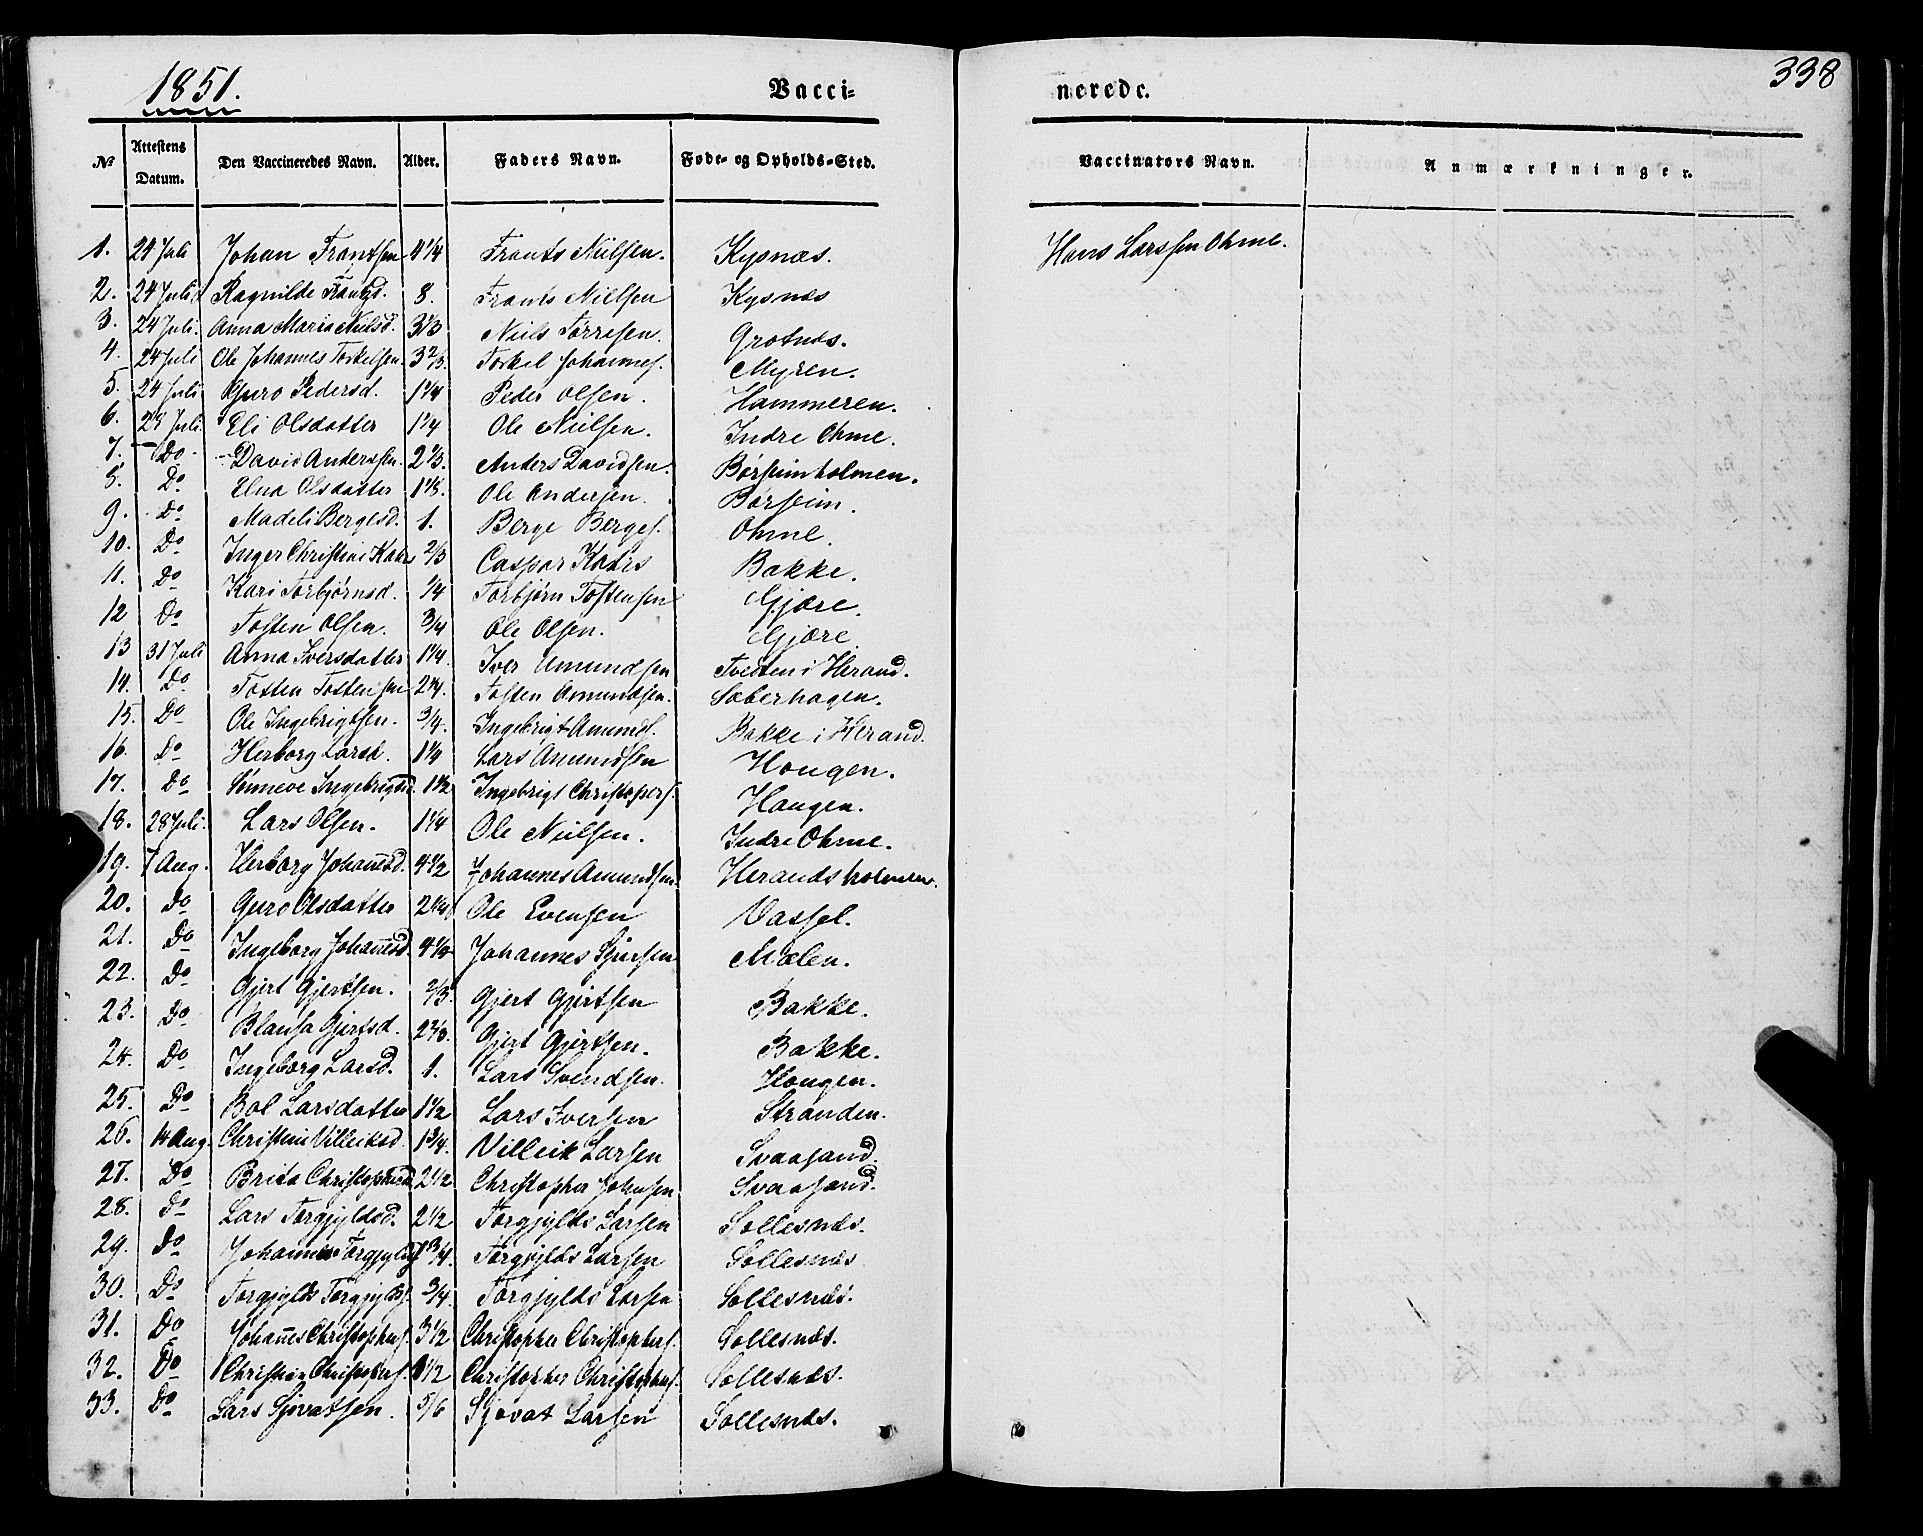 1851.
Vacci-
nerede.
338
No
Attestens Datum.
Den Vaccineredes Navn.
Alder.
Faders Navn.
Føde- og Opholds-Sted.
Vaccinators Navn.
Anmærkninger.
1. 24 Juli Johan Frantsen 4 1/4 Frants Nielsen. Kysnæs. Hans Larssen Ohme.
2. 24 Juli Ragnilde Frantsd. 8. Frants Nielsen Kysnæs
3. 24 Juli. Anna Maria Nilsd. 3 1/3 Niels Torresen. Grotnæs.
4. 24 Juli Ole Johannes Torkelsen 3 2/3. Torkel Johannes. Myren.
5. 24 Juli Guro Pedersd. 1 1/4 Peder Olsen. Hammeren.
6. 28 Juli. Eli Olsdatter 1 1/4 Ole Nielsen. Indre Ohme.
7. Do David Anderssen. 2 1/3. Anders Davidsen. Børseimholmen.
8. Do Olsdatter Ole Andersen. Børseim.
9. Do Madeli Bergesd. 1. Berge Berges. Ohme.
10. Do Inger Christine 2/3 Caspar Bakke.
11. Do Kari Torbjørnsd. 1/4 Torbjørn Tostensen Gjære.
12 Do Tosten Olsen. 3/4 Ole Olsen. Gjære
13 31 Juli Anna Iversdatter 1 1/4. Iver Amundsen Tveiten i Herand.
14. Do Tosten Tostensen 2 1/4. Tosten Amundsen. Sæberhagen.
15. Do Ole Ingebrigtsen. 3/4. Ingebrigt Amunds. Bakke i Herand.
16. Do Herborg Larsd. 1 1/4 Lars Amundsen Hougen.
17. Do Sønneve Ingebrigtsd. 1 1/2 Ingebrigt Christophers. Haugen.
18. 28 Juli. Lars Olsen. 1 1/4 Ole Nielsen. Indre Ohme.
19. 7 Aug. Herborg Johannesd. 4 1/2 Johannes Amundsen. Herandsholmen.
20. Do Guro Olsdatter 2 1/4 Ole Evensen Vassel.
21. Do Ingeborg Johannesd. 4 1/4 Johannes Sjursen Mælen.
22. Do Gjert Gjertsen. 2/3. Gjert Gjertsen Bakke.
23. Do Blansa Gjertsd. 2 2/3. Gjert Gjertsen. Bakke.
24. Do Ingeborg Larsd. 1. Lars Svendsen. Hougen.
25. Do Bol Larsdatter 1 1/2 Lars Iversen Stranden.
26. 14 Aug. Christine Villeiksd. 1 3/4. Villeik Larsen Svaasand.
27. Do Brita Christophersd. 2 1/2 Christopher Johnsen Svaasand.
28. Do Lars Torgjyldsd. 2 1/2 Torgjylds Larsen Sollesnæs.
29. Do Johannes Torgjylds. 1 3/4. Torgjylds Larsen Sollesnæs
30. Do Torgjylds Torgjylds. 3/4. Torgjylds Larsen Sollesnæs.
31. Do Johannes Christophers. 3 1/2 Christopher Christophers. Sollesnæs.
32. Do Christian Christophers. 1/2 Christopher Christophers. Sollesnæs.
33. Do Lars Sjovatsen. 5/6 Sjovat Larsen Sollesnæs.